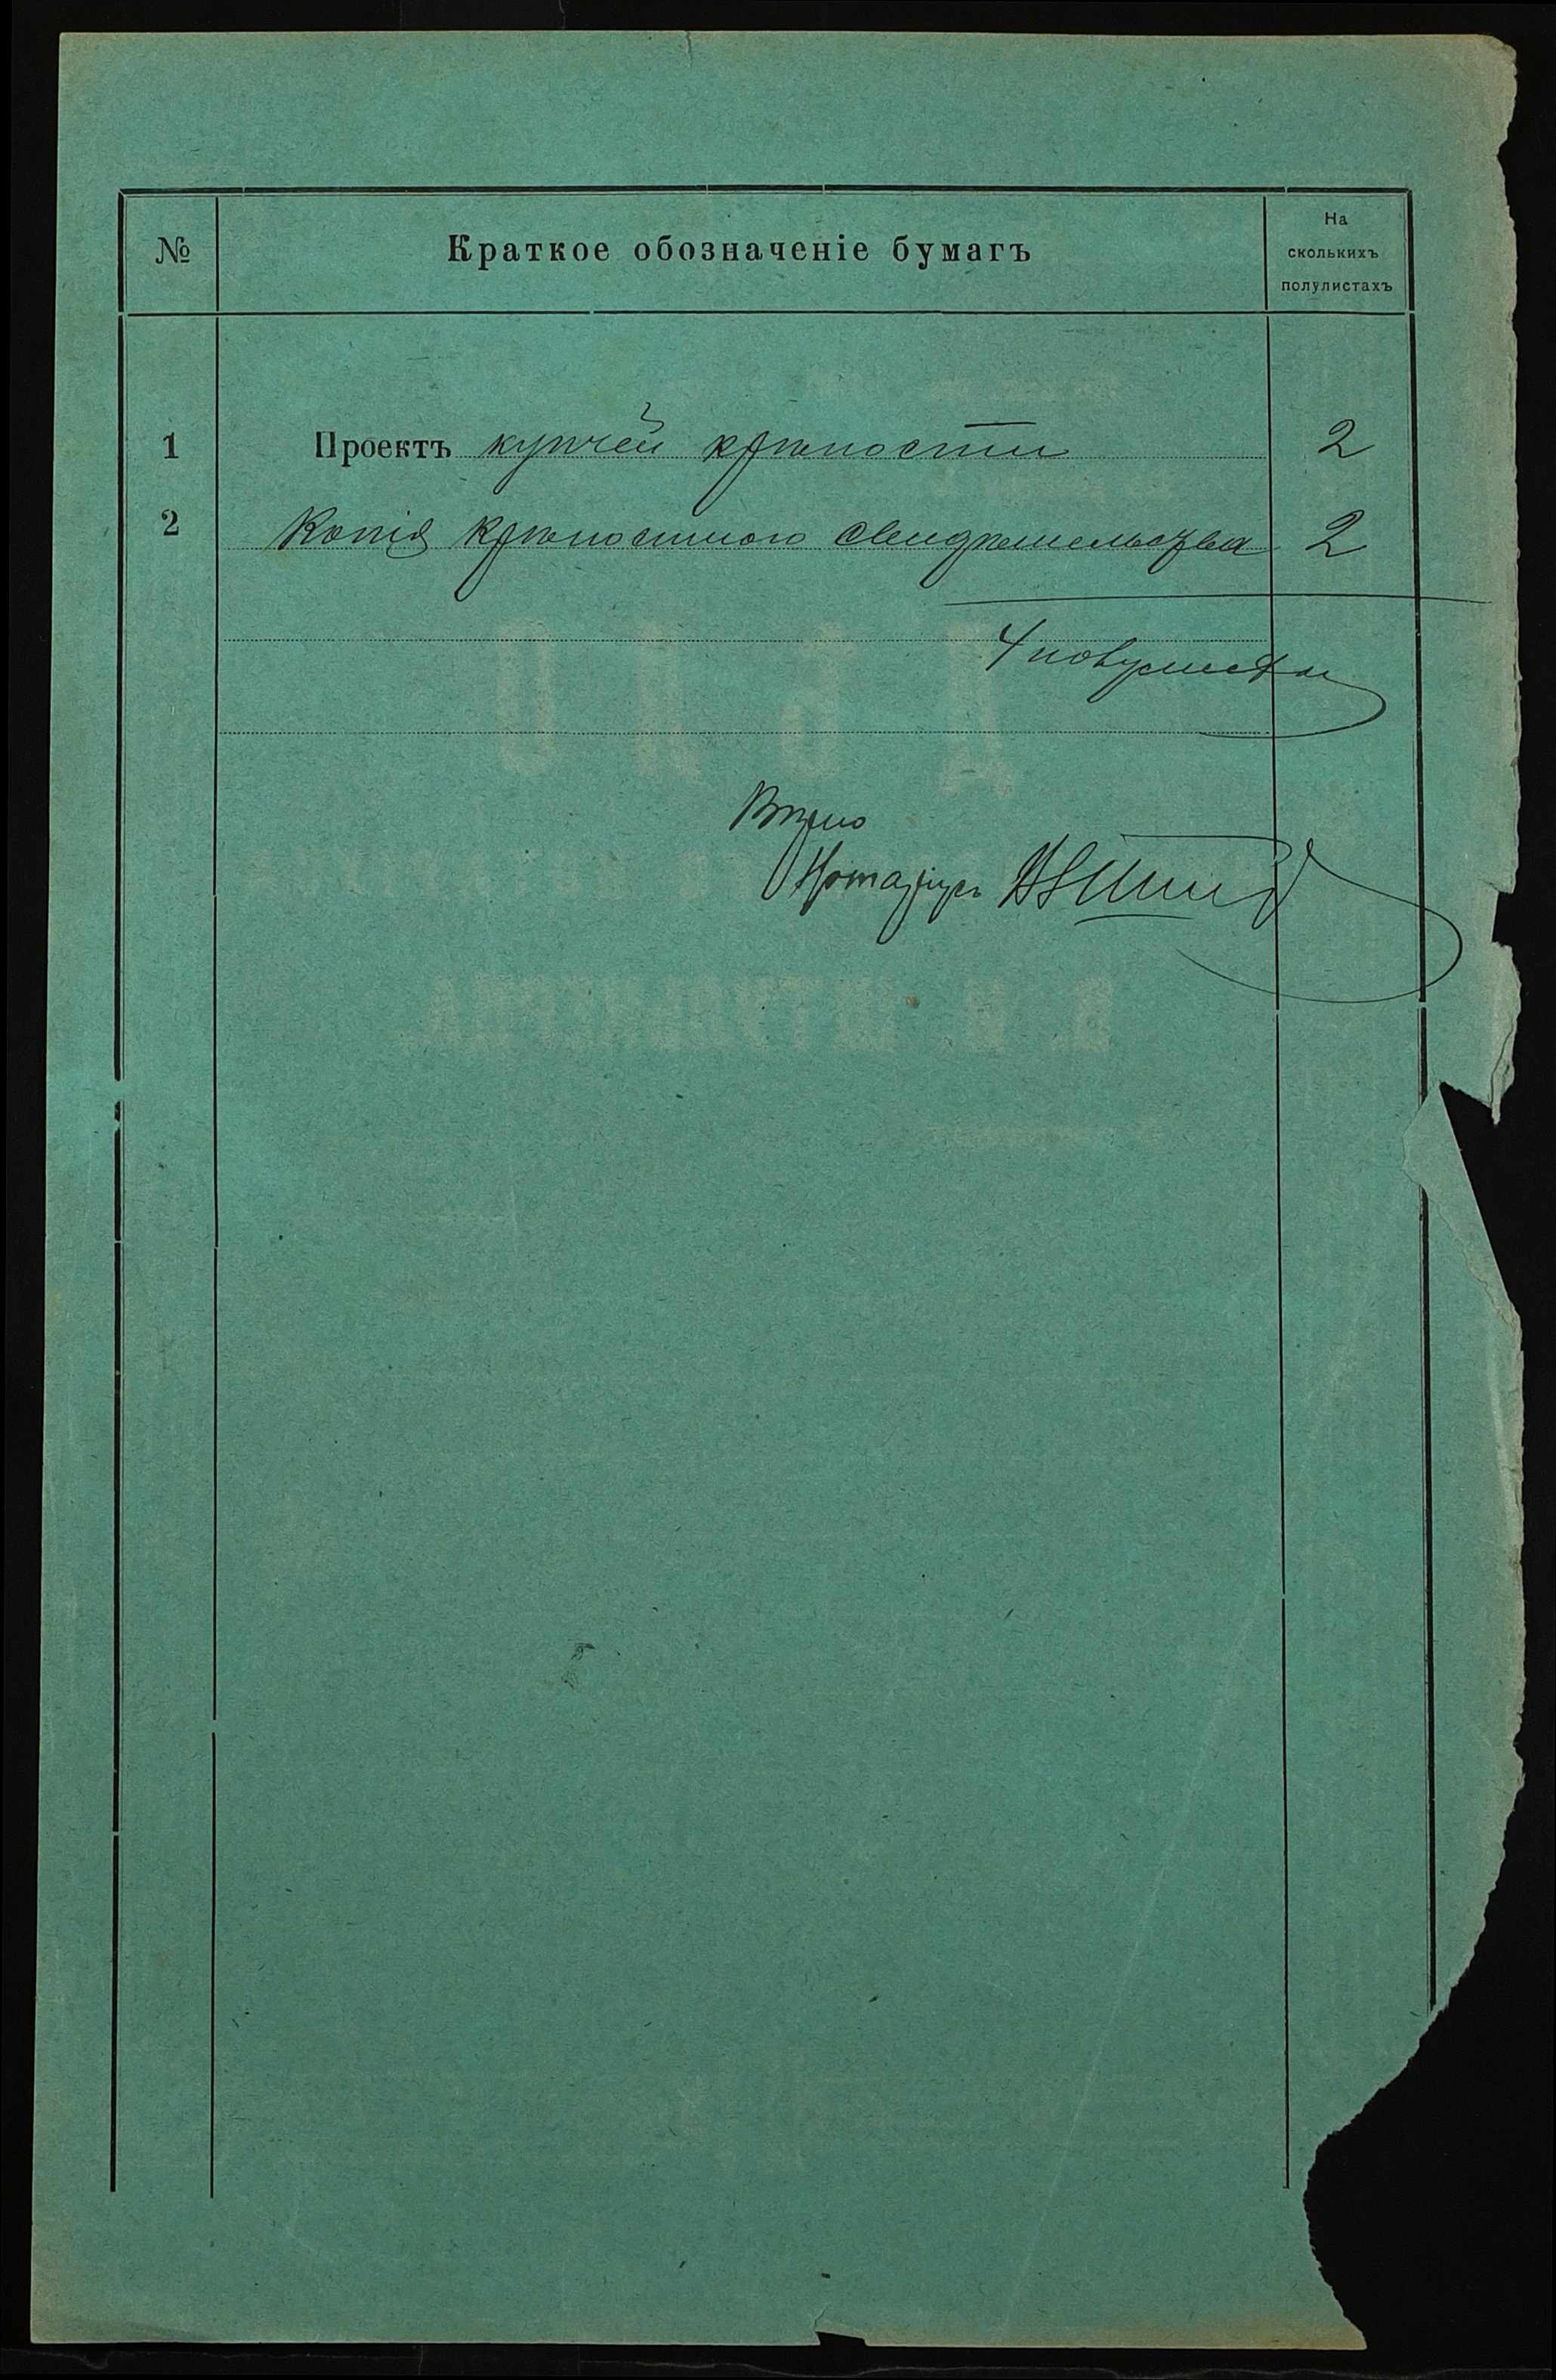 №
Краткое обозначеніе бумагъ
На
сколькихъ
полулистахъ
1 Проектъ купчей крѣпости 2
2 Копія крѣпостного свидѣтельства 2
4 полулиста
Вѣрно
Нотаріусъ
ДѢЛО